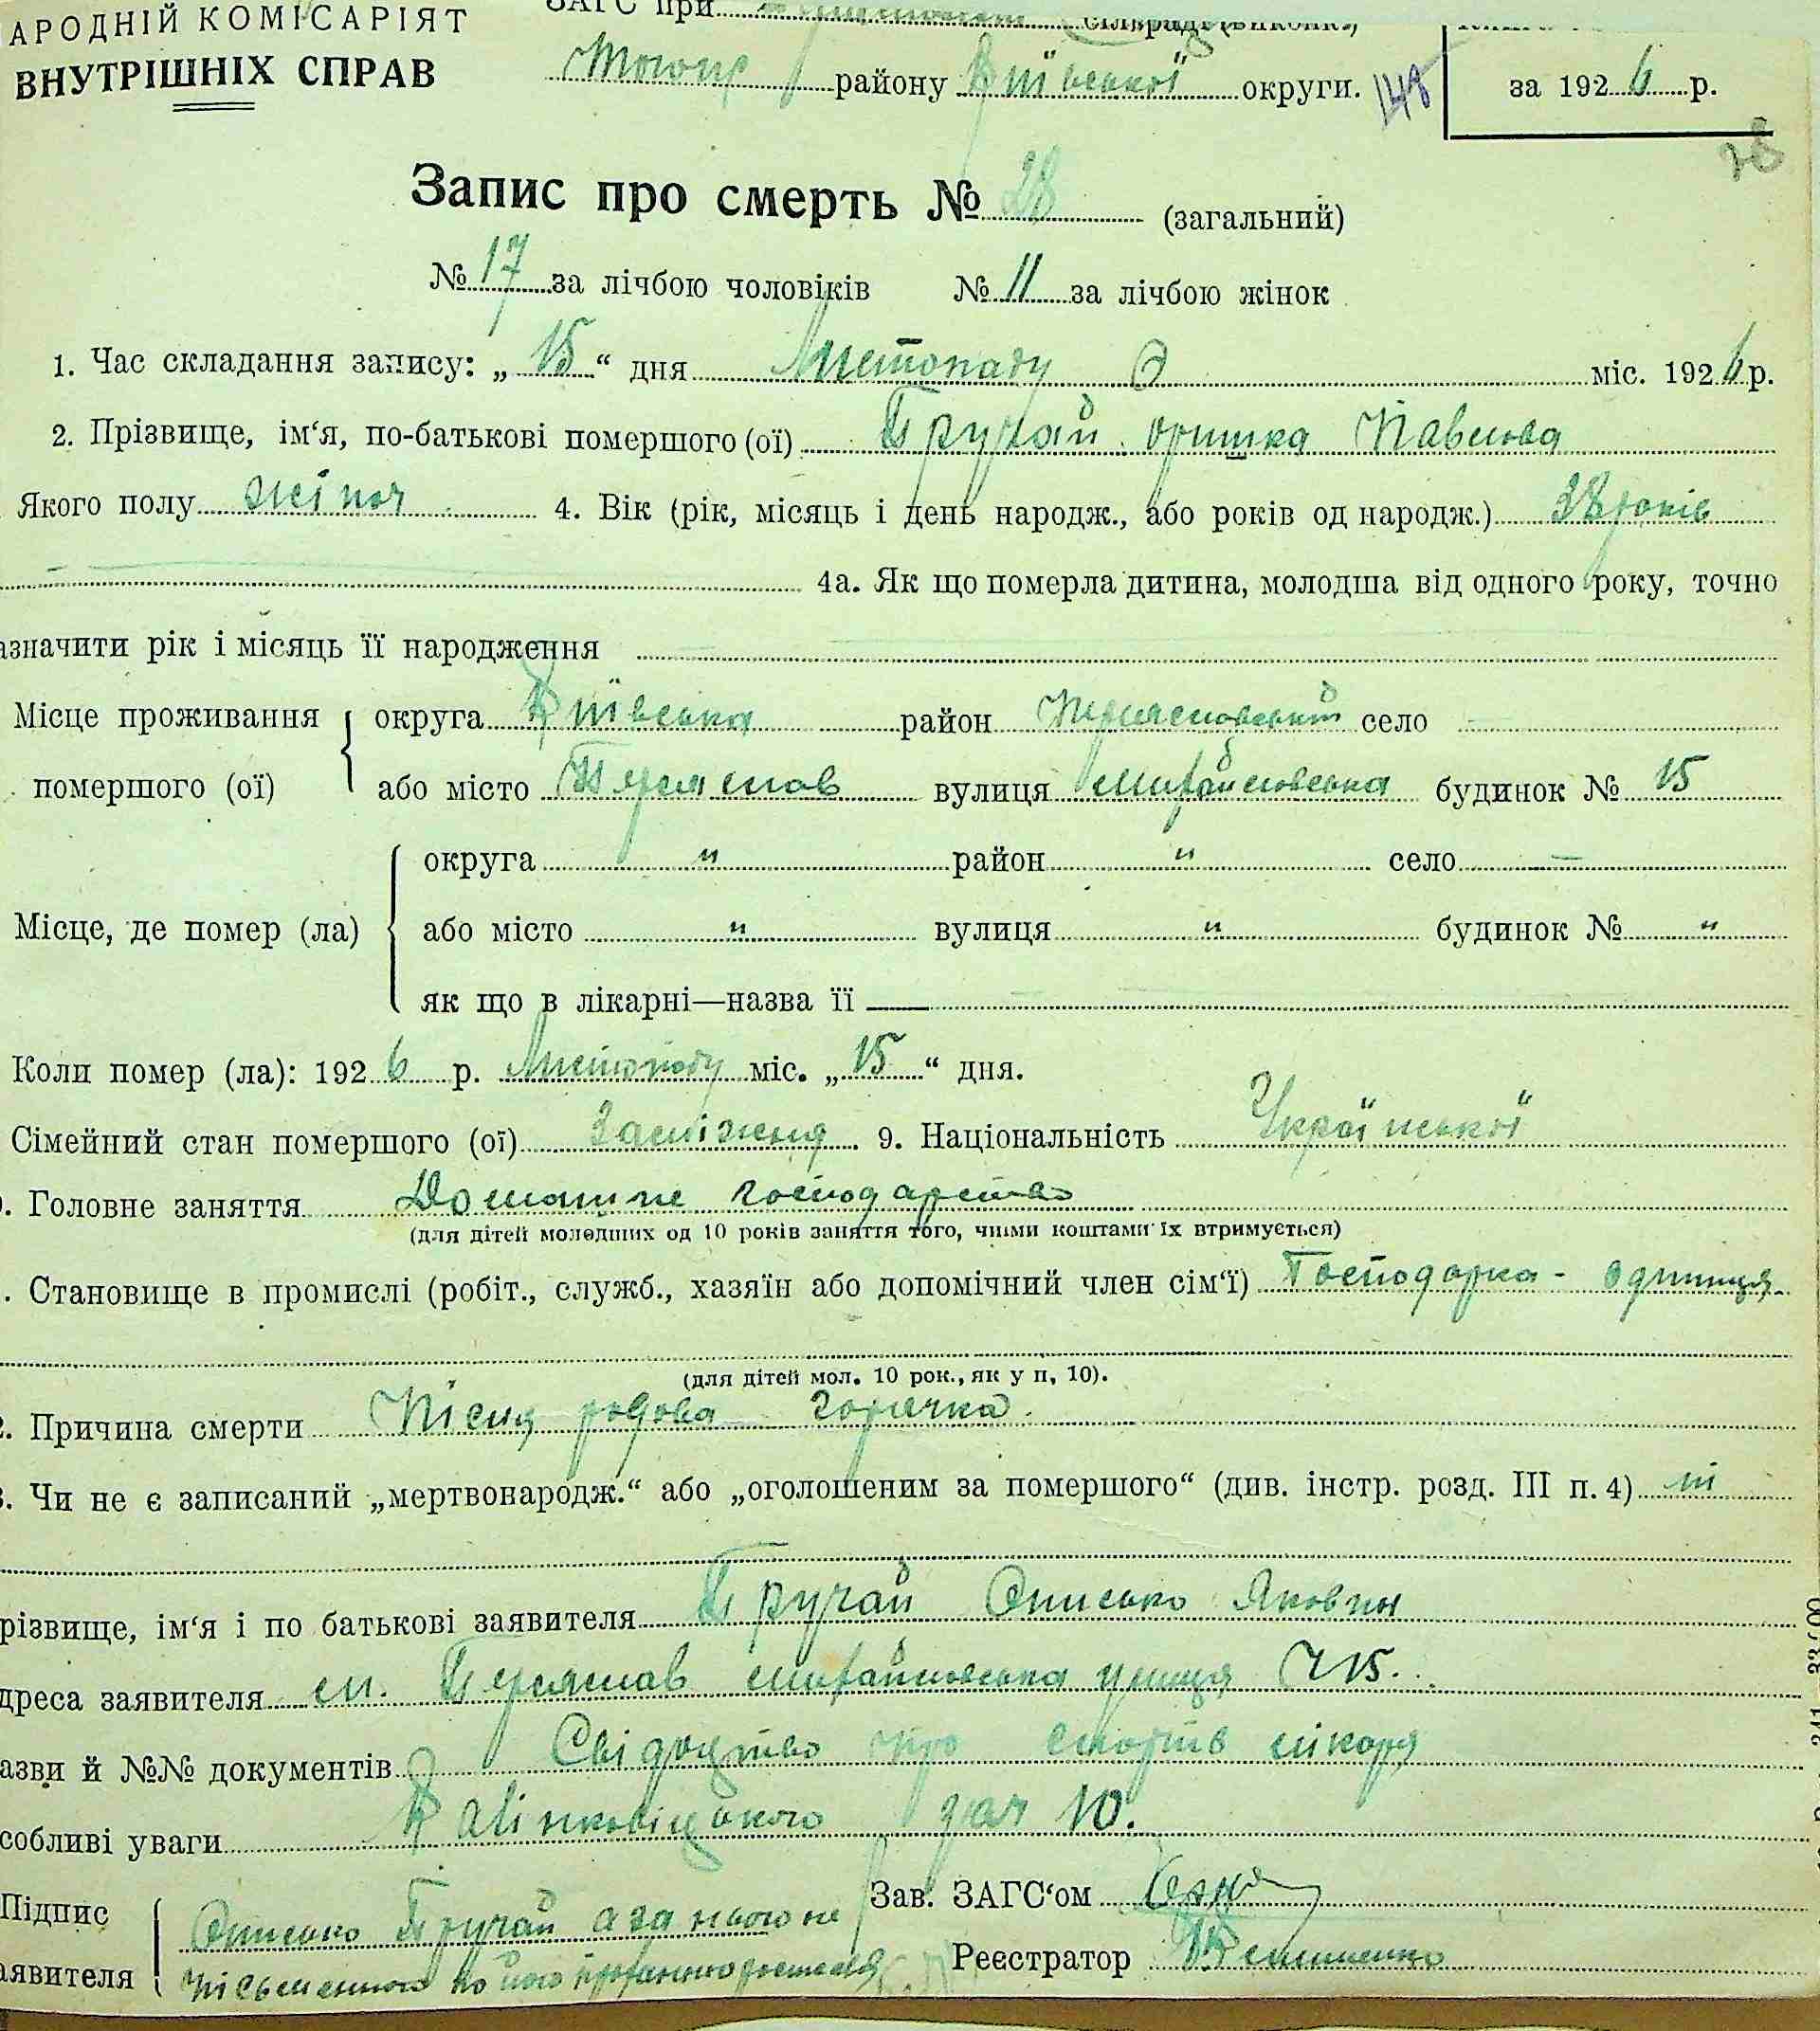 АРОДНІЙ КОМІСАРІЯТ
ВНУТРІШНІХ СПРАВ
ЗАГС при
району Київської округи. 148
за 1926 р.
28
Запис про смерть № 28 (загальний)
№ 17 за лічбою чоловіків № 11 за лічбою жінок
1. Час складання запису: „ 15 “ дня Листопаду міс. 1926 р.
2. Прізвище, ім‘я, по-батькові померщого (ої) Пручай оришка Павлова
Якого полу жіноч 4. Вік (рік, місяць і день народж., або років од народж.) 38 років
4а. Як що померла дитина, молодша від одного року, точно
азначити рік і місяць її народження
Місце проживання округа Київська район Переяславський село —
помершого (ої) або місто Переяслав вулиця Михайлівська будинок № 15
округа " район " село —
Місце, де помер (ла) або місто " вулиця " будинок № "
як що в лікарні—назва її —
Коли помер (ла): 1926 р. Листопаду міс. „ 15 “ дня.
Сімейний стан помершого (ої) Заміжня 9. Національність Української
. Головне заняття Домашнє господарство
(для дітей молодших од 10 років заняття того, чиїми коштами їх втримується)
. Становище в промислі (робіт., служб., хазяїн або допомічний член сім‘ї) Господарка - одиниця
(для дітей мол. 10 рок., як у п, 10).
. Причина смерти Післяродова горячка
. Чи не є записаний „мертвонародж.“ або „оголошеним за помершого“ (див. інстр. розд. III п. 4) ні
різвище, ім‘я і по батькові заявителя Пручай Онисько Якович
дреса заявителя м. Переяслав Михайлівська улиця Ч 15.
азви й №№ документів Свідоцтво про смерть лікаря
собливі уваги Калінковіцького за ч 10.
Підпис Онисько Пручай а за нього не
аявителя письменного по його проханню
Зав. ЗАГС‘ом
Реєстратор